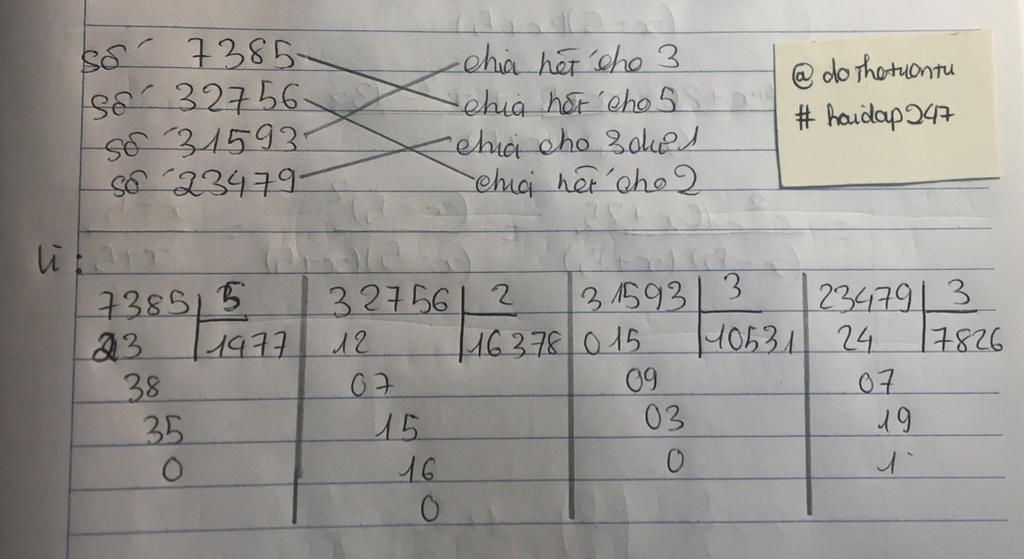 số 7385 chia hết cho 3
số 32756 chia hết cho 5
số 31593 chia cho 3 dư 1
số 23479 chia hết cho 2
@ dothotuantu
# hoidap247
Vì:
7385 5 32756 2 31593 3 23479 3
23 1477 12 16378 015 10531 24 7826
38 07 09 07
35 15 03 19
0 16 0 1
0